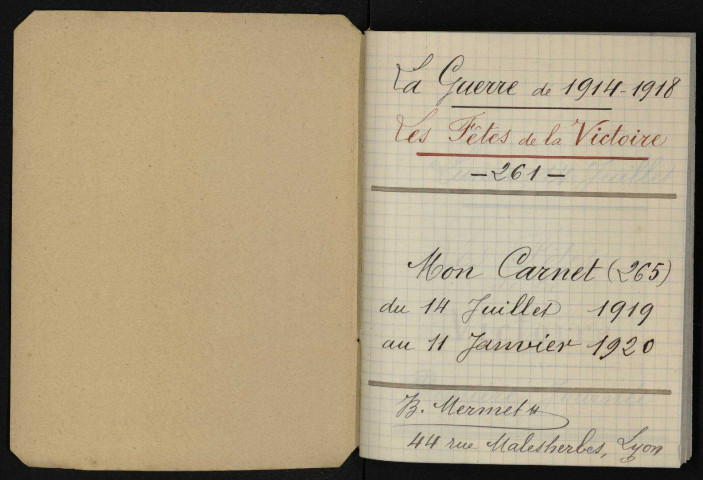 La Guerre de 1914-1918
Les Fêtes de la Victoire
- 261 -
Mon Carnet (265)
du 14 Juillet 1919
au 11 Janvier 1920
B. Mermet
44 rue Malesherbes, Lyon